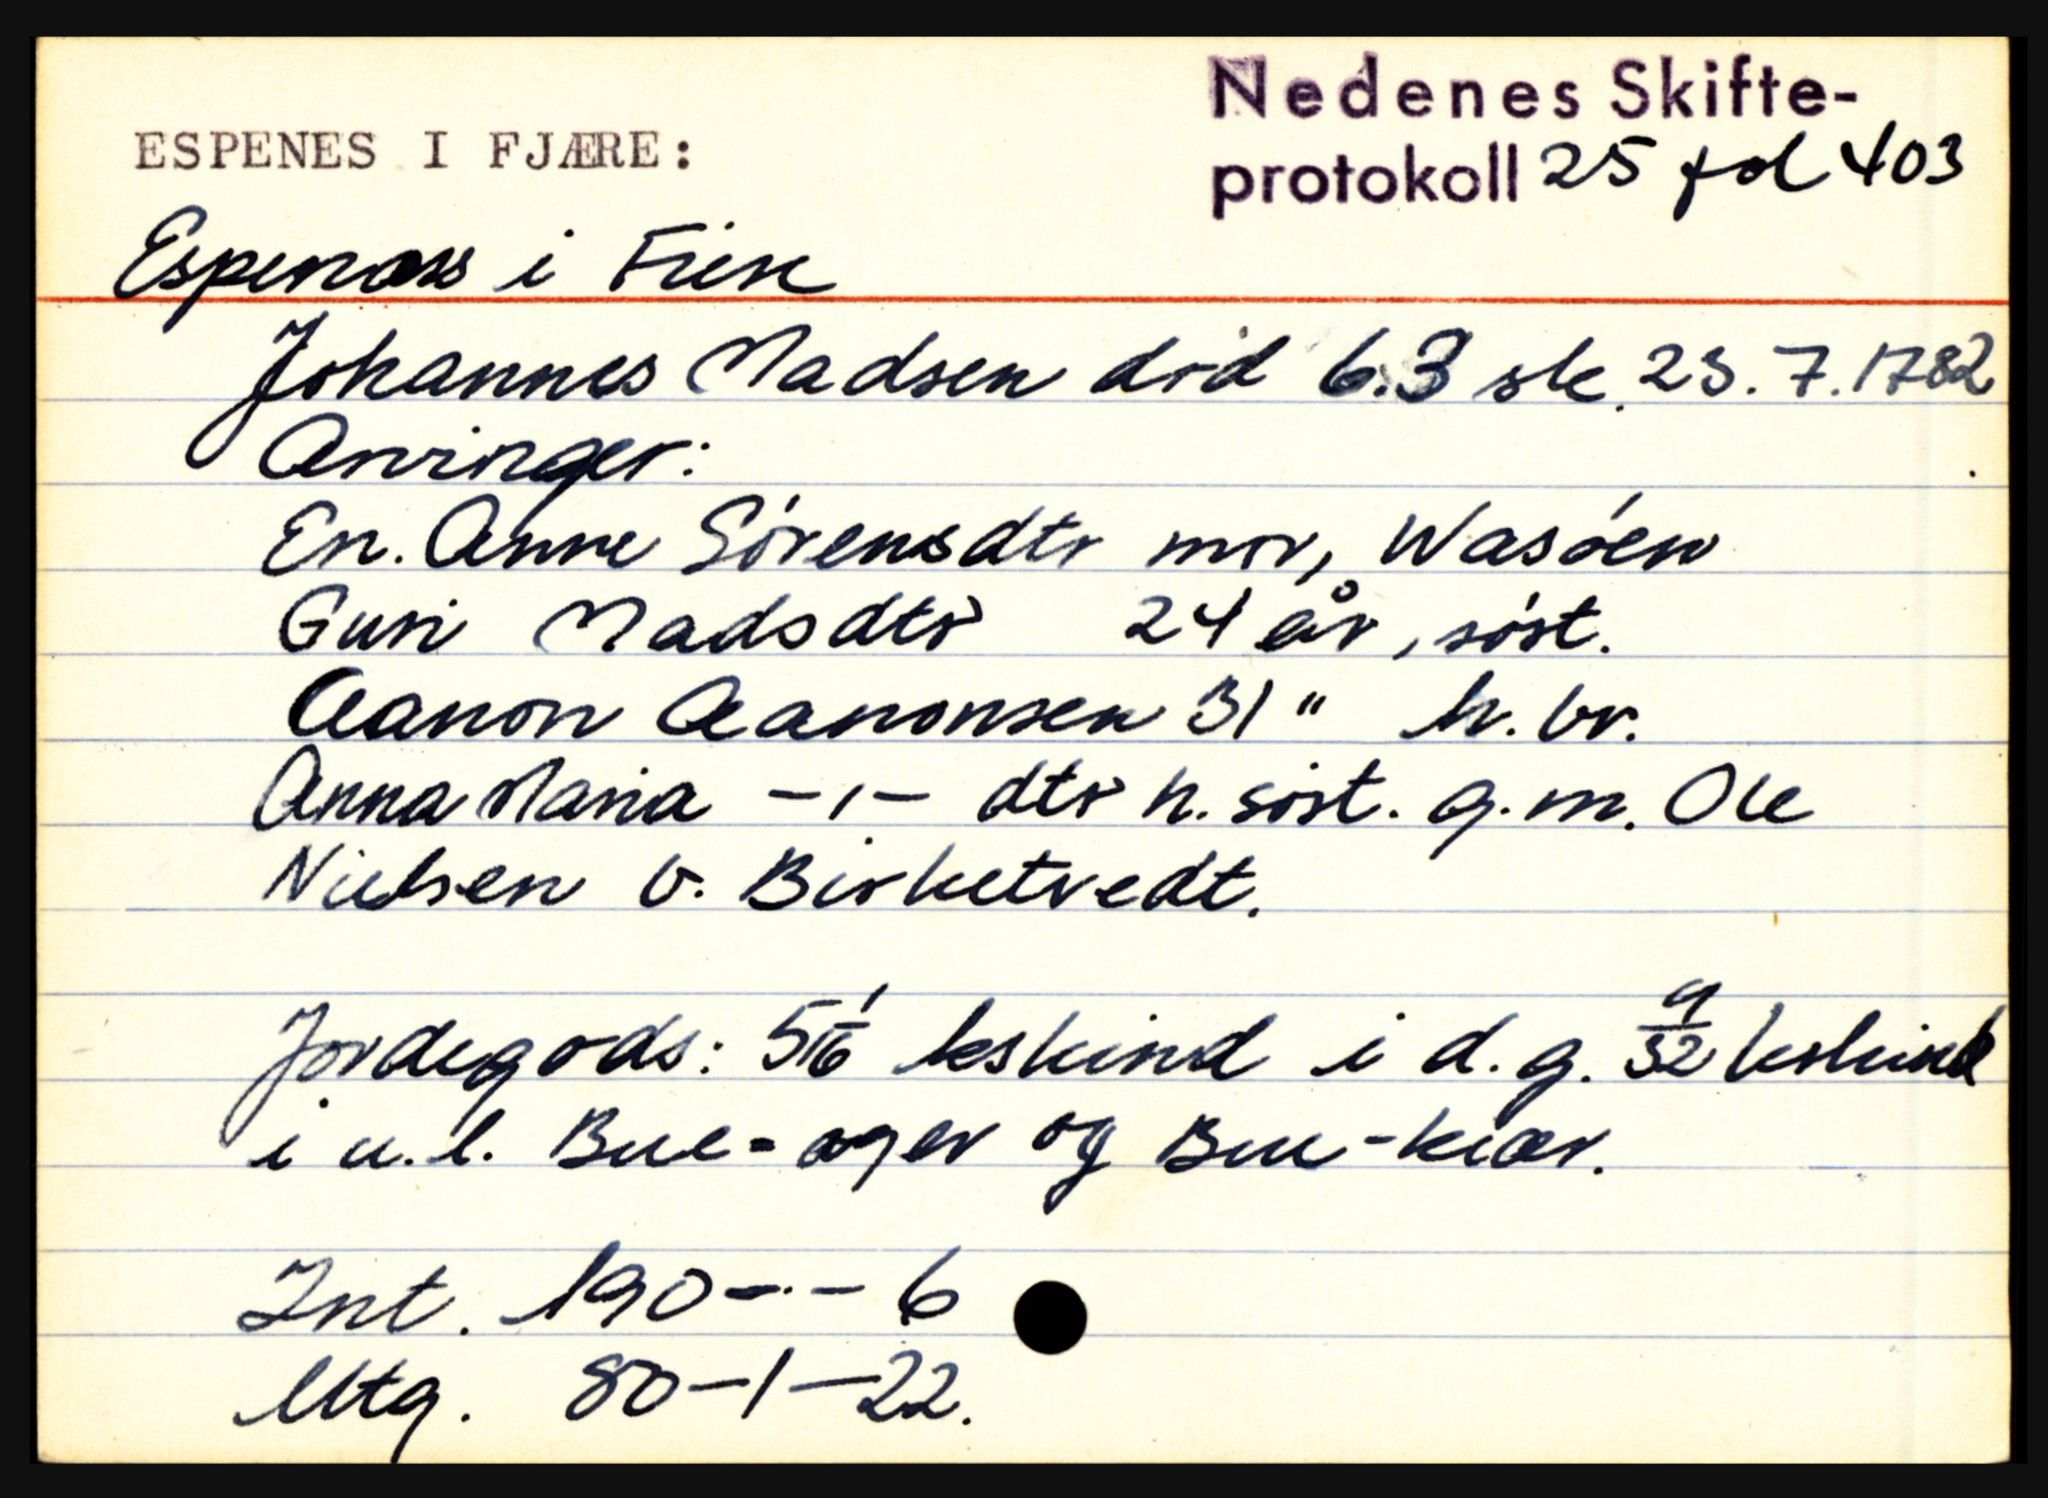 Nedenes Skifte-
ESPENES I FJÆRE:
protokoll 25 fol 403
Espenæss i Fiere
Johannes Madsen død 6.3 sk. 23.7.1782
Arvinger:
En. Anne Sørensdtr mor, Wasøen
Guri Madsdtr 24 år, søst.
Aanon Aanonsen 31 " h. br.
Anna Maria -"- dtr h. søst. g.m. Ole
Nielsen b. Birketvedt.
Jordegods: 5 1/16 kskind i d.g. 9/32 kskind
i u.l. Bue-ager og Bue-kiær.
Int. 190 - - - 6
Utg. 80-1-22.